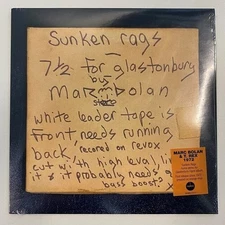 Sunken rags
7½ for glastonbury
by
Marc Bolan
stereo
white leader tape is
front needs running
back, recored on revox
cut with high level, li
it & it probably needs a
bass boost?
MARC BOLAN
& T. REX
1972